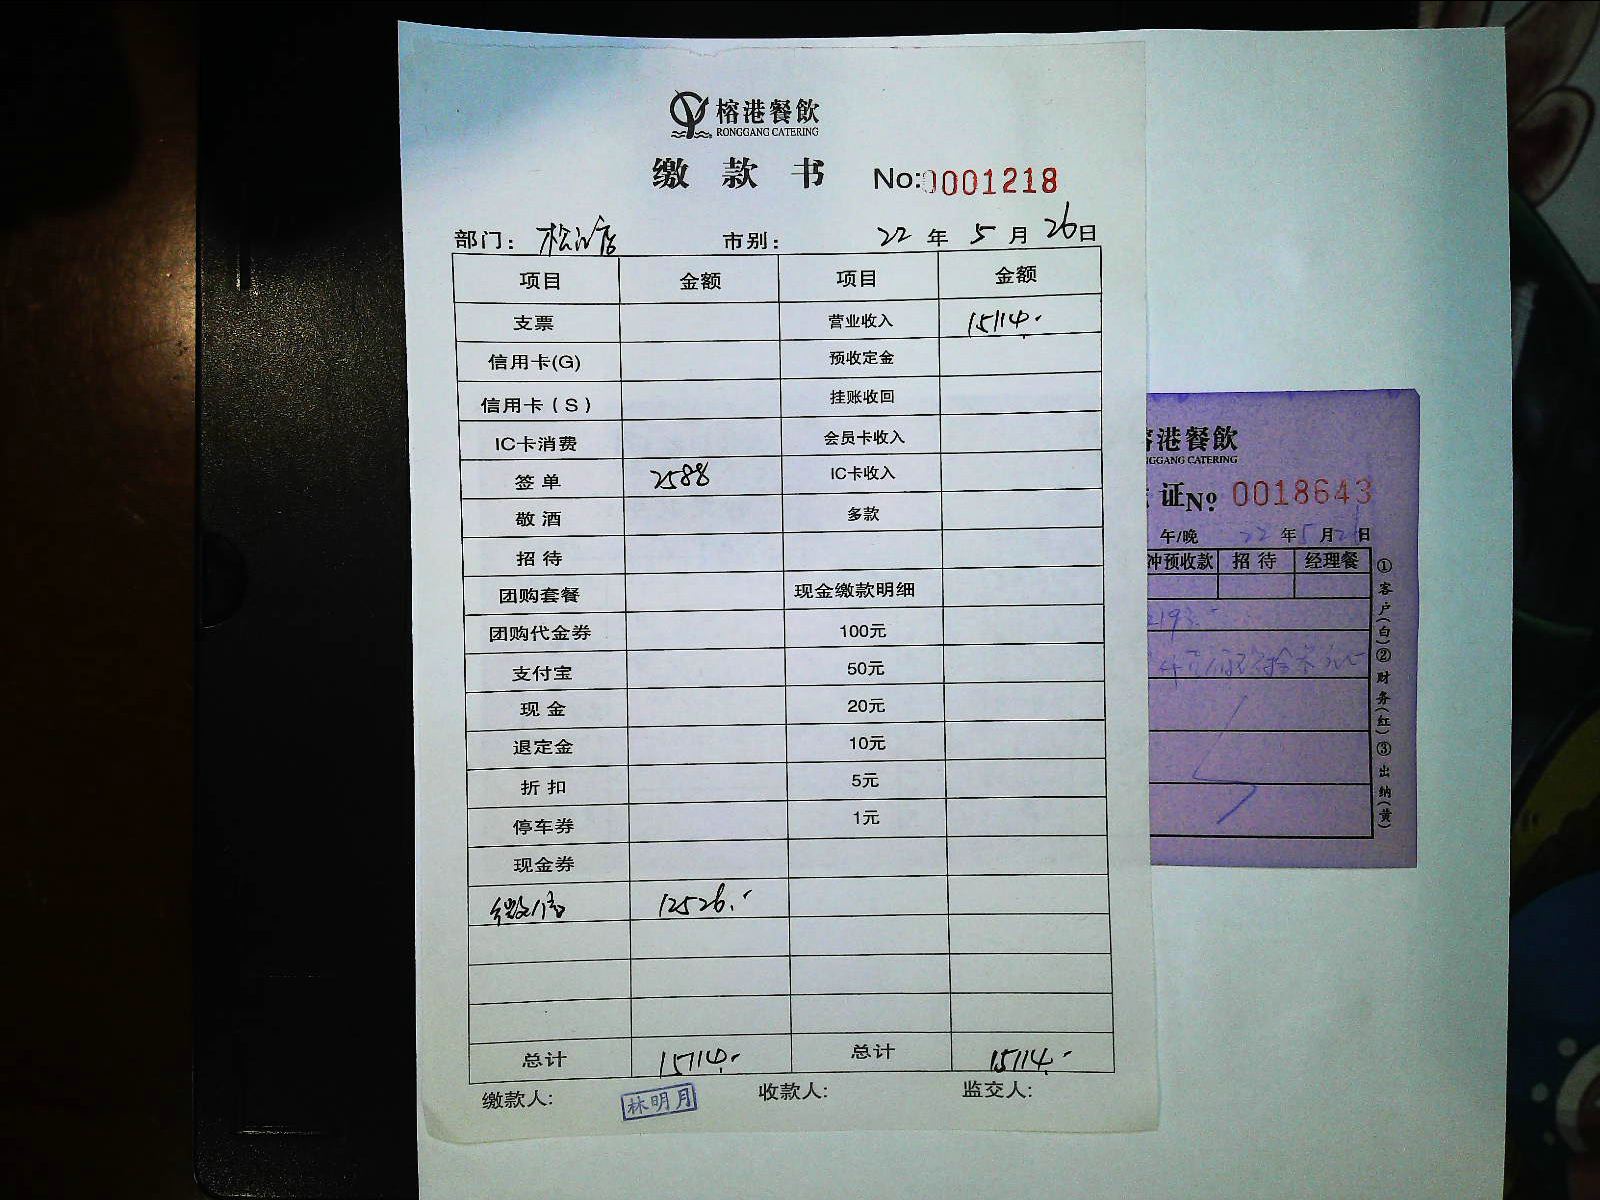 榕港餐飲
RONGGANG CATERING
缴款书 No:0001218
部门: 松江店 市别: 22年5月26日
项目 金额 项目 金额
支票 营业收入 15114.-
信用卡(G) 预收定金
信用卡(S) 挂账收回
IC卡消费 会员卡收入
签单 2588 IC卡收入
敬酒 多款
招待
团购套餐 现金缴款明细
团购代金券 100元
支付宝 50元
现金 20元
退定金 10元
折扣 5元
停车券 1元
现金券
微信 12526.-
总计 15114.- 总计 15114.-
缴款人: 林明月 收款人: 监交人:
港餐飲
GGANG CATERING
证No 0018643
午/晚 22年5月26日
冲预收款 招待 经理餐
2193.-
①客户(白)②财务(红)③出纳(黄)